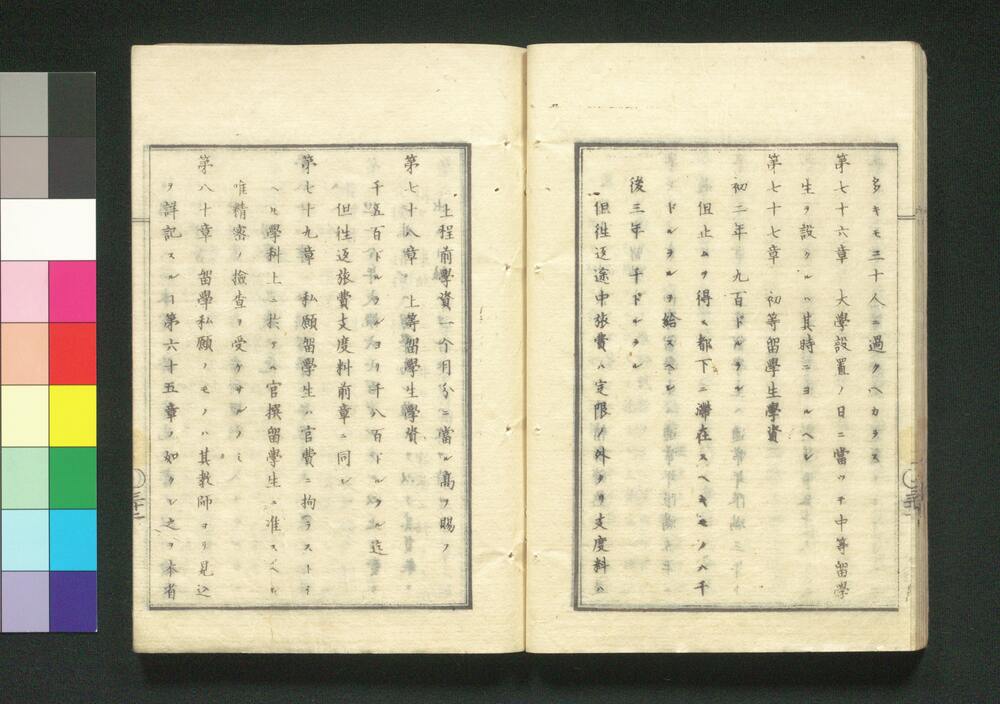 多キモ三十人ニ過クヘカラス
第七十六章 大學設置ノ日ニ當ツテ中等留學
生ヲ設クルハ其時ニヨルヘシ
第七十七章 初等留學生學資
初二年 九百ドルラル
但止ムヲ得ス都下ニ滯在スヘキモノハ千
ドルラルヲ給スヘシ
後三年 千ドルラル
但徃返途中張費ハ定限ノ外タリ支度料ハ
上程前學資一个月分ニ當ル高ヲ賜フ
第七十八章 上等留學生學資
千五百ドルラルヨリ千八百ドルラル迄
但徃返張費支度料前章ニ同シ
第七十九章 私願留學生ハ官費ニ拘ラストイ
ヘモ學科上ニ於テハ官撰留學生ニ准スヘシ
唯精密ノ撿査ヲ受ケサルノミ
第八十章 留學私願ノモノハ其教師ヨリ見込
ヲ詳記スルヿ第六十五章ノ如クシ之ヲ本省